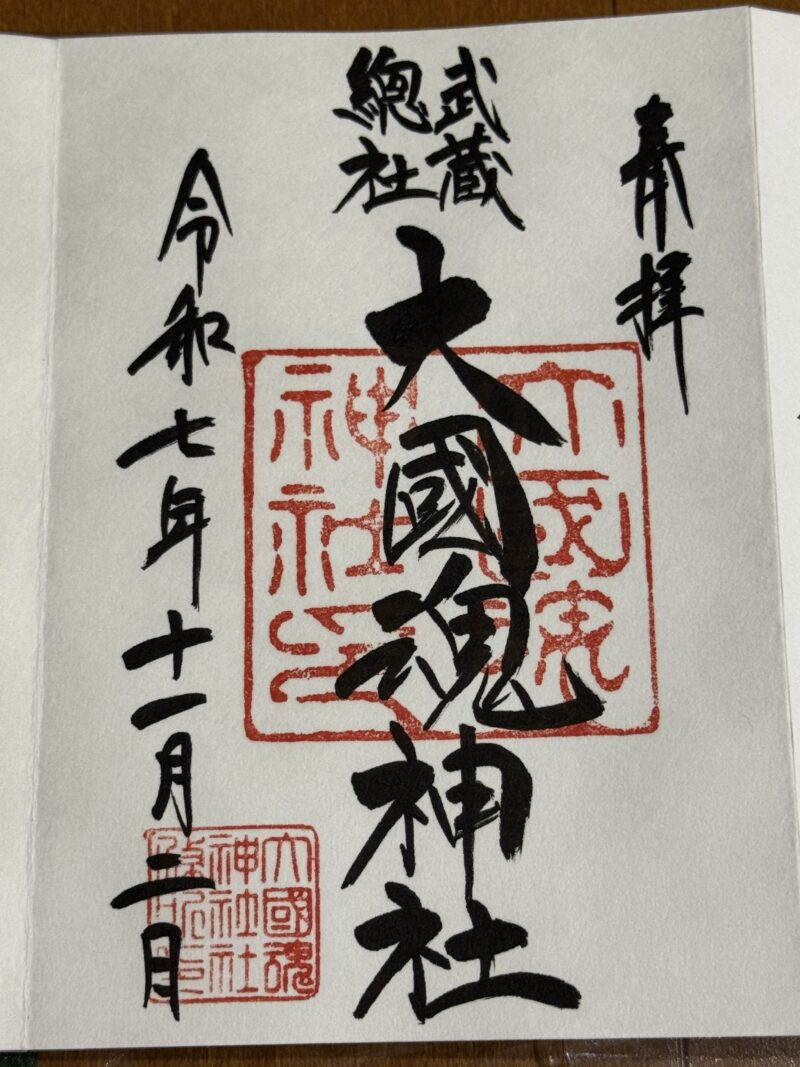 奉拝
武蔵
總社
大國魂神社
令和七年十一月二日
大國魂
神社印
大國魂
神社社